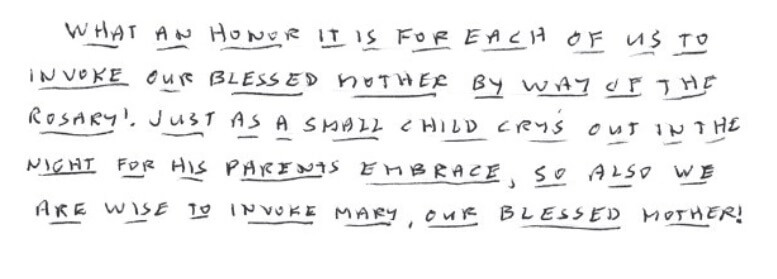 WHAT AN HONOR IT IS FOR EACH OF US TO
INVOKE OUR BLESSED MOTHER BY WAY OF THE
ROSARY! JUST AS A SMALL CHILD CRY'S OUT IN THE
NIGHT FOR HIS PARENTS EMBRACE, SO ALSO WE
ARE WISE TO INVOKE MARY, OUR BLESSED MOTHER!